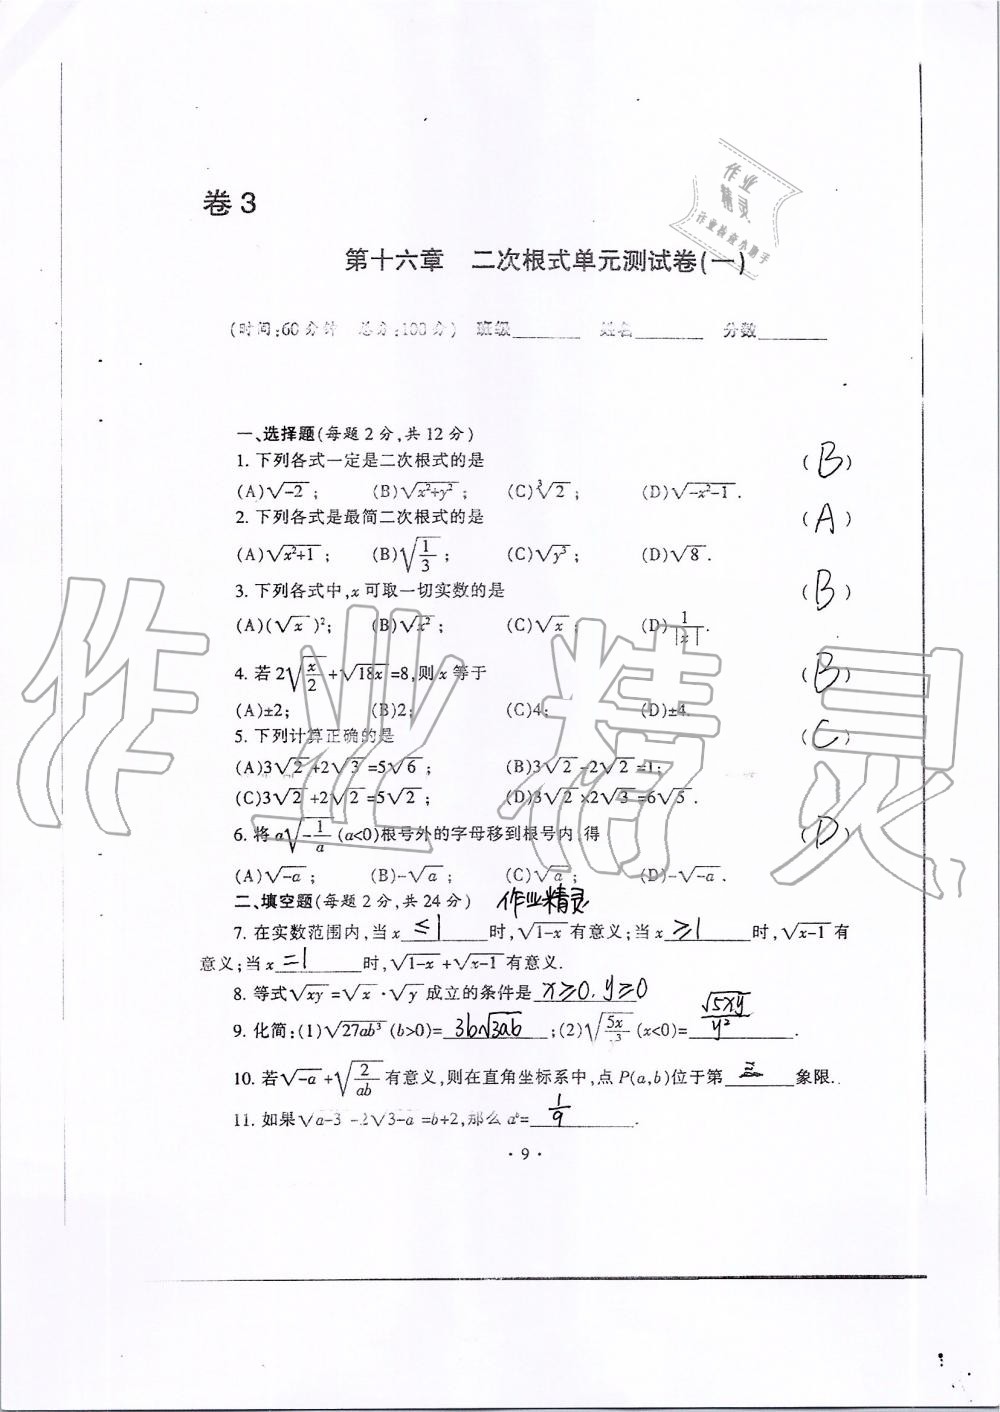 作业
精灵
作业检查小助手
卷3
第十六章 二次根式单元测试卷(一)
(时间:60分钟 总分:100分) 班级______ 姓名______ 分数______
一、选择题(每题2分,共12分)
1. 下列各式一定是二次根式的是 (B)
(A)√-2; (B)√x²+y²; (C)∛2; (D)√-x²-1.
2. 下列各式是最简二次根式的是 (A)
(A)√x²+1; (B)√1/3; (C)√y³; (D)√8.
3. 下列各式中,x可取一切实数的是 (B)
(A)(√x)²; (B)√x²; (C)√x; (D)√1/|x|.
4. 若2√x/2+√18x=8,则x等于 (B)
(A)±2; (B)2; (C)4; (D)±4.
5. 下列计算正确的是 (C)
(A)3√2+2√3=5√6; (B)3√2-2√2=1;
(C)3√2+2√2=5√2; (D)3√2×2√3=6√5.
6. 将a√-1/a(a<0)根号外的字母移到根号内,得 (D)
(A)√-a; (B)-√a; (C)√a; (D)-√-a.
二、填空题(每题2分,共24分) 作业精灵
7. 在实数范围内,当x ≤1 时,√1-x有意义;当x ≥1 时,√x-1有
意义;当x =1 时,√1-x+√x-1有意义.
8. 等式√xy=√x·√y成立的条件是 x≥0,y≥0
9. 化简:(1)√27ab³(b>0)= 3b√3ab ;(2)√5x/y³(x<0)= √5xy/y² .
10. 若√-a+√2/ab有意义,则在直角坐标系中,点P(a,b)位于第 三 象限.
11. 如果√a-3-2√3-a=b+2,那么aᵇ= 1/9 .
·9·
作业精灵